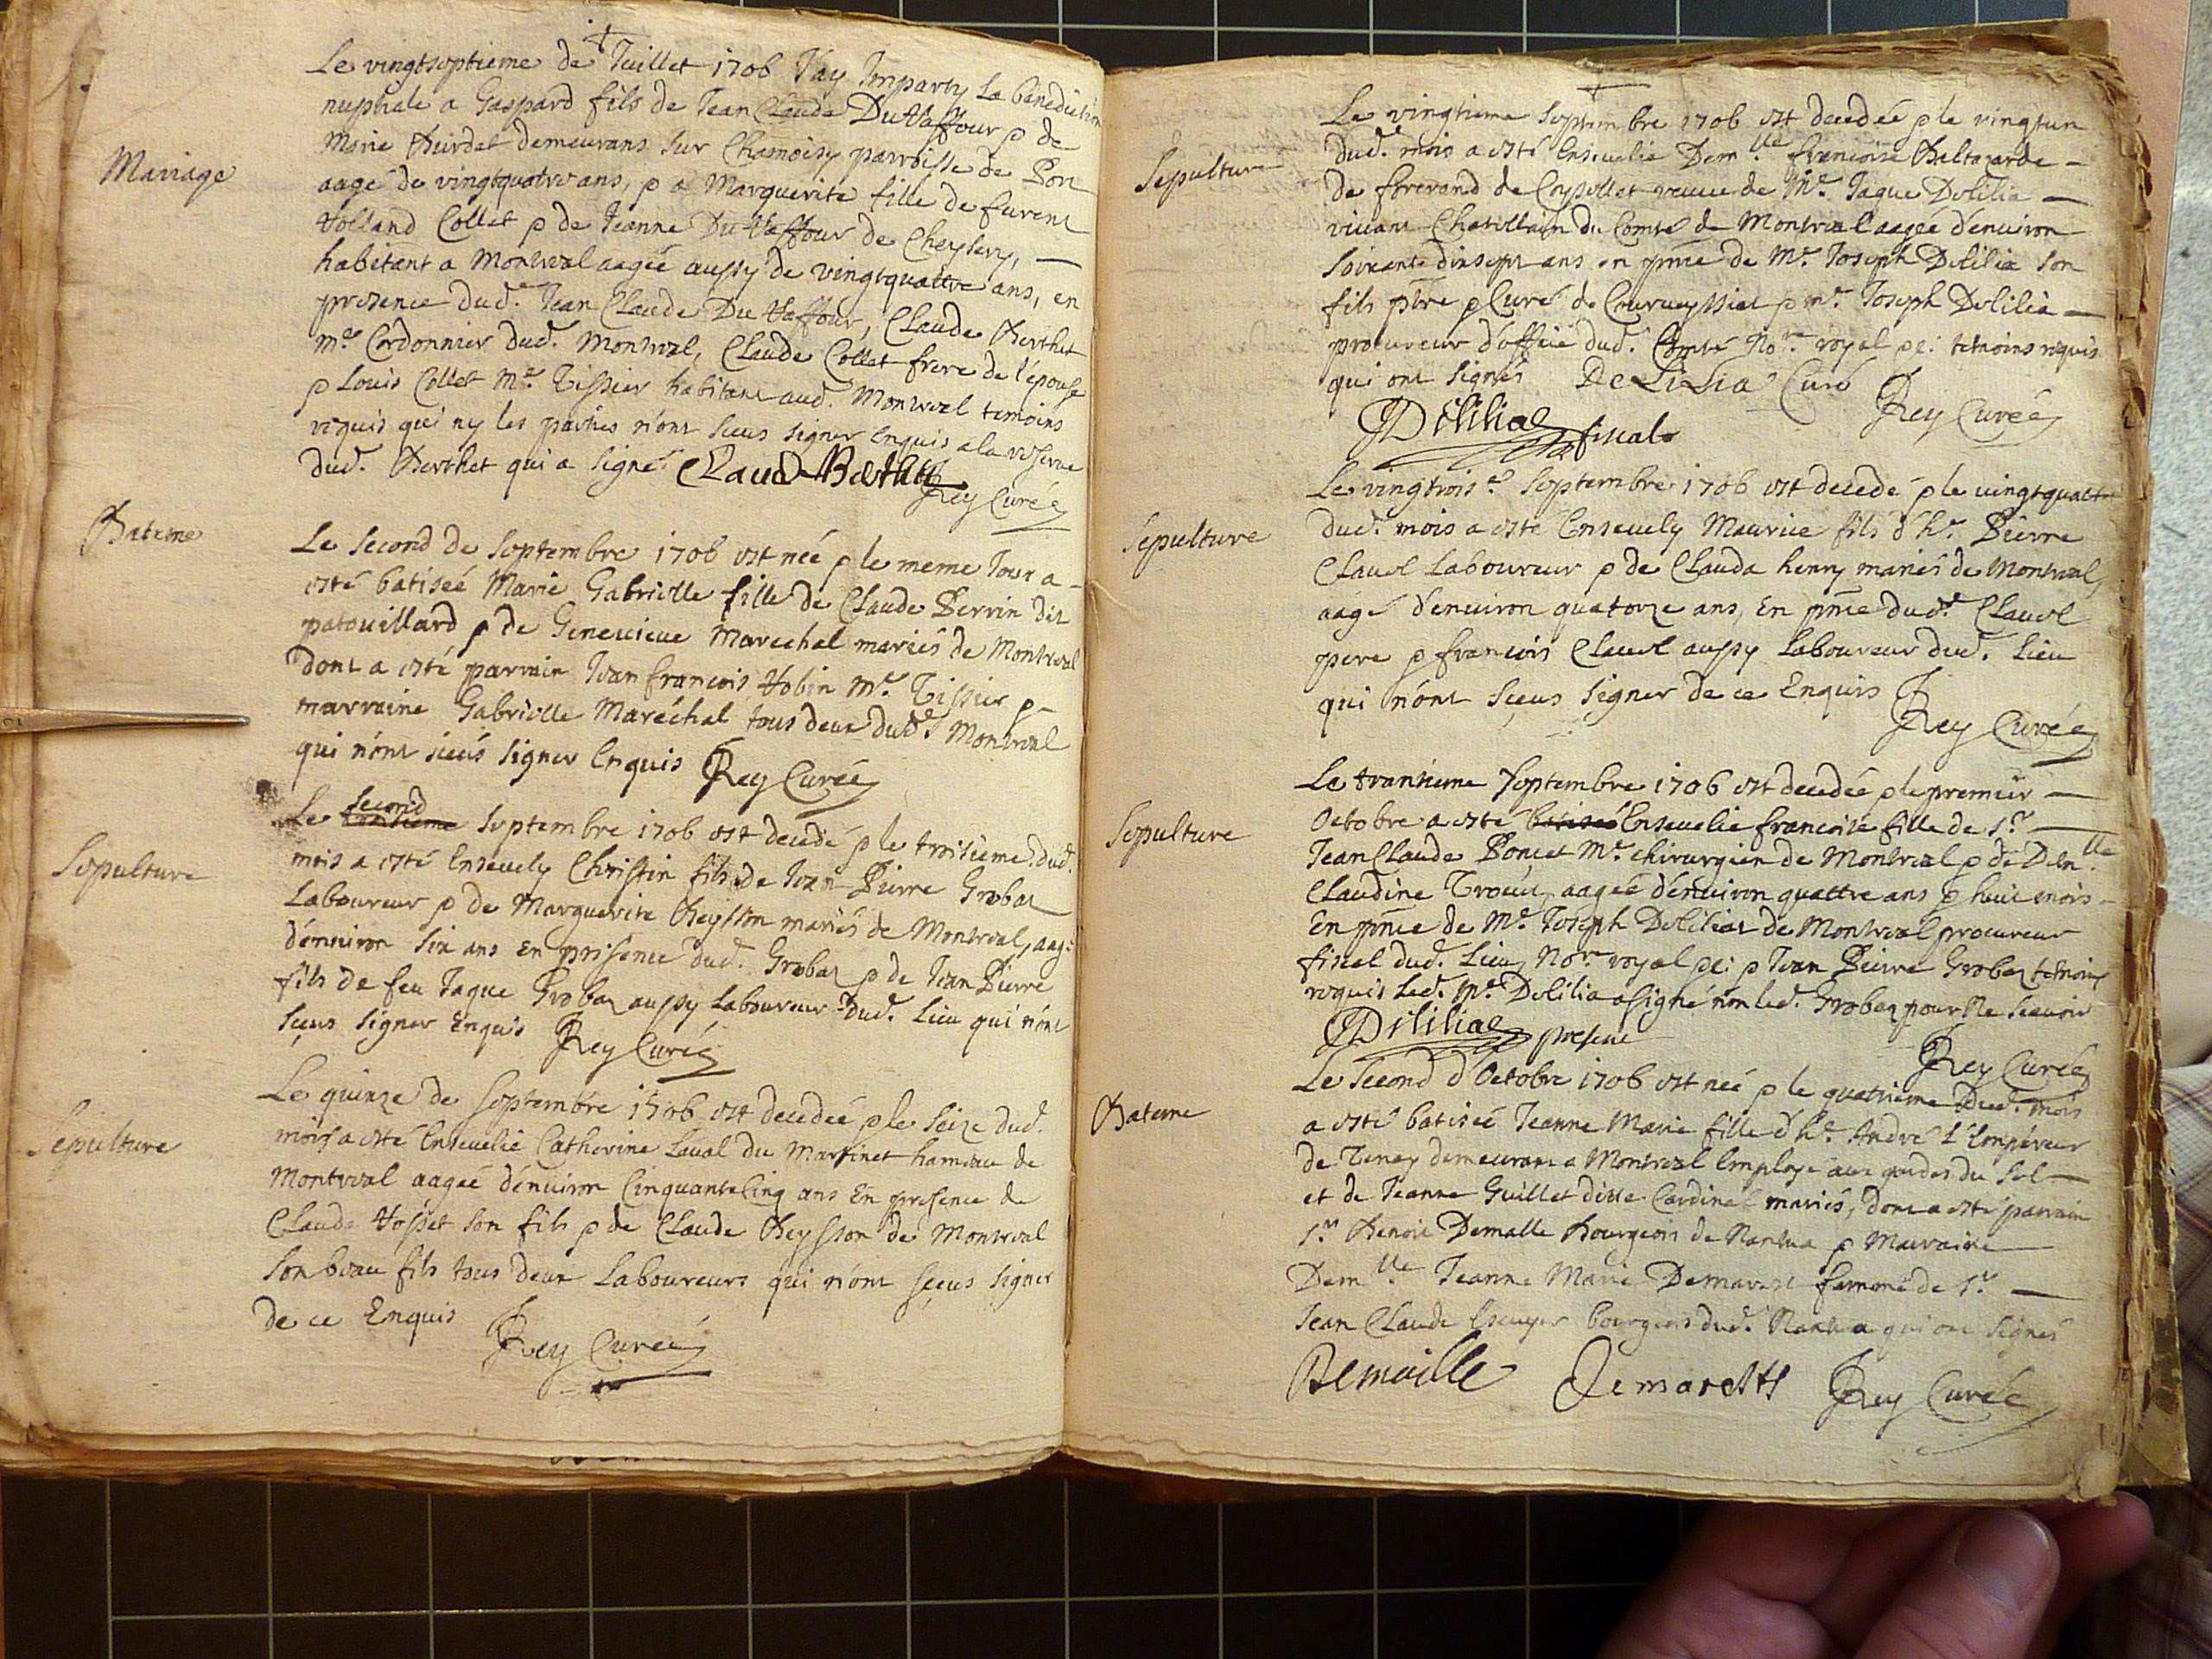 Mariage
Le vingtseptieme de Juillet 1706 J'ay Imparty La benediction
nuptiale a Gaspard fils de Jean Claude Du Vaffour p de
Marie Burdet demeurans sur Chamoisy parroisse de Port
aagé de vingtquatre ans, p a Marguerite fille de furent
Volland Collet p de Jeanne Du Vaffour de Cheysery,
habitant a Montreal aagée aussy de vingtquattre ans, en
presence dud.t Jean Claude Du Vaffour, Claude Berthet
m.e Cordonnier dud. Montreal, Claude Collet frere de l'epouse
p Louis Collet M.e Tissier habitant aud. Montreal temoins
requis qui ny les parties n'ont sceus signer Enquis a la reserve
dud. Berthet qui a signé Claud Berthet
Rey Curée
Bateme
Le second de Septembre 1706 est née p le meme Jour a
esté batisée Marie Gabrielle fille de Claude Perrin dit
patouillard p de Genevieve Marechal mariés de Montreal
dont a esté parrain Jean francois Hobin M.e Tissier p
marraine Gabrielle Maréchal tous deux dud.t Montreal
qui n'ont sceus signer Enquis Rey Curée
Sepulture
Le second Septembre 1706 est decedé p le troisieme dud.
mois a esté Ensevely Christin fils de Jean Pierre Grobaz
Laboureur p de Marguerite Beysson mariés de Montreal, aagé
d'environ six ans en presence dud. Grobaz p de Jean Pierre
fils de feu Jaque Grobaz aussy Laboureur dud. Lieu qui n'ont
sceus signer Enquis Rey Curée
Sepulture
Le quinze de Septembre 1706 est decedeé p le seize dud.
mois a esté Ensevelie Catherine Laval du Martinet hameau de
Montreal aageé d'environ Cinquantecinq ans En presence de
Claude Vosset son fils p de Claude Beysson de Montreal
son beau fils tous deux Laboureurs qui n'ont sceus signer
de ce Enquis
Rey Curée
Sepulture
Le vingtieme Septembre 1706 est decedée p le vingtun
dud. mois a esté Ensevelie Dem.lle francoise Baltazarde
de forcrand de Coysellet veuve de M.e Jaque Delilia
vivant Chatellain du Comté de Montreal aageé d'environ
soixante dixsept ans en pnce de M.e Joseph Delilia son
fils ptre p Curé de p m.e Joseph Delilia
procureur d'office dud. Comté No.re royal p temoins requis
qui ont signés DeLiLia Curé
Rey Curée
JDelilia fiscal
Sepulture
Le vingtrois.e Septembre 1706 est decedé p le vingtquattre
dud. mois a esté Ensevely Maurice fils d'h.e Pierre
Clavel Laboureur p de Clauda henry mariés de Montreal,
aagé d'environ quatorze ans, En pnce dud.t Clavel
pere p francois Clavel aussy Laboureur dud. Lieu
qui n'ont sceus signer de ce Enquis
Rey Curée
Sepulture
Le trantieme Septembre 1706 est decedée p le premier
Octobre a esté batiseé Ensevelie francoise fille de s.r
Jean Claude Poncet M.e chirurgien de Montreal p de Dem.lle
Claudine aageé d'environ quattre ans p huit mois
En pnce de M.e Joseph Deliliaz de Montreal procureur
fiscal dud. Lieu No.re royal p Jean Pierre Grobaz temoins
requis led. M.e Delilia a signé non led. Grobaz pour Ne scavoir
JDelilia present
Rey Curée
Bateme
Le second d'Octobre 1706 est neé p le quatrieme Dud. mois
a esté batiseé Jeanne Marie fille d'h.e André L'Empéreur
de Tenay demeurant a Montreal Employé aux gardes du sel
et de Jeanne Guillet ditte Cardinal mariés, dont a esté parrain
s.r Benoit Demalle Bourgeois de Nantua p Marraine
Dem.lle Jeanne Marie Demarest femme de s.r
Jean Claude bourgeois dud. Nantua qui ont signés
Demaille Demarests Rey Curée